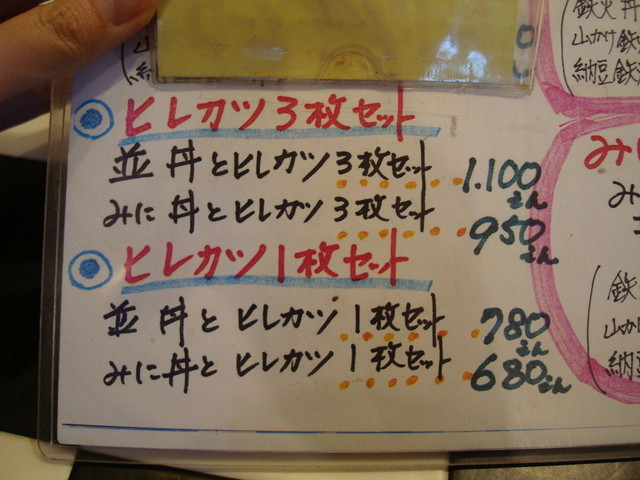 ヒレカツ3枚セット
並丼とヒレカツ3枚セット 1.100えん
みに丼とヒレカツ3枚セット 950えん
ヒレカツ1枚セット
並丼とヒレカツ1枚セット 780えん
みに丼とヒレカツ1枚セット 680えん
鉄火丼
山かけ鉄
納豆鉄
みに
み
鉄
山かけ
納豆